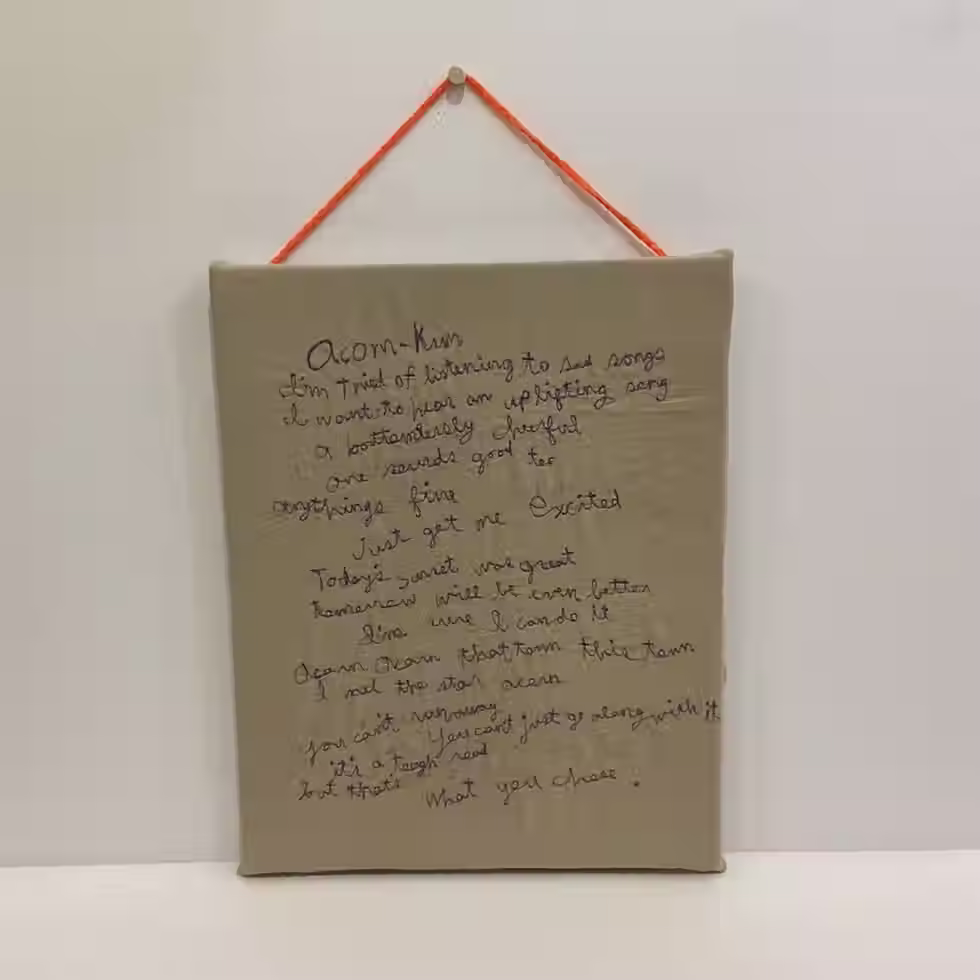 Acorn-Kun
I'm Tried of listening to sad songs
I want to hear an uplifting song
a bottomlessly cheerful
one sounds good too
anythings fine
Just get me Excited
Today's sunset was great
tomorrow will be even better
I'm sure I can do it
Acorn Acorn that town this town
I the star acorn
you can't runaway
You can't just go along with it
it's a tough road
but that's
What you chose